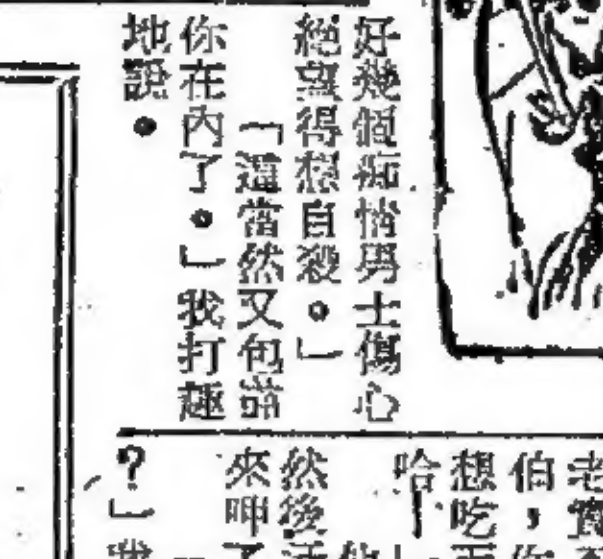 好幾個痴情男士傷心
絕望得想自殺。」
「這當然又包括
你在內了。」我打趣
地說。
老實
伯，
想吃
哈
然後
來呷
？」